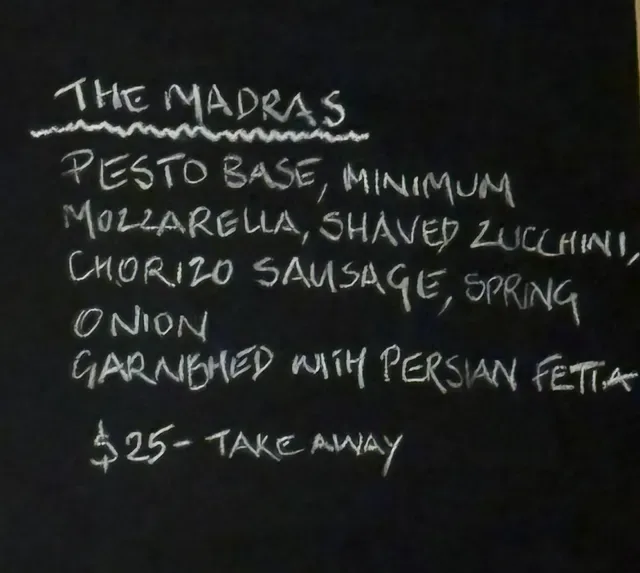 THE MADRAS
PESTO BASE, MINIMUM
MOZZARELLA, SHAVED ZUCCHINI,
CHORIZO SAUSAGE, SPRING
ONION
GARNISHED WITH PERSIAN FETTA
$25- TAKE AWAY